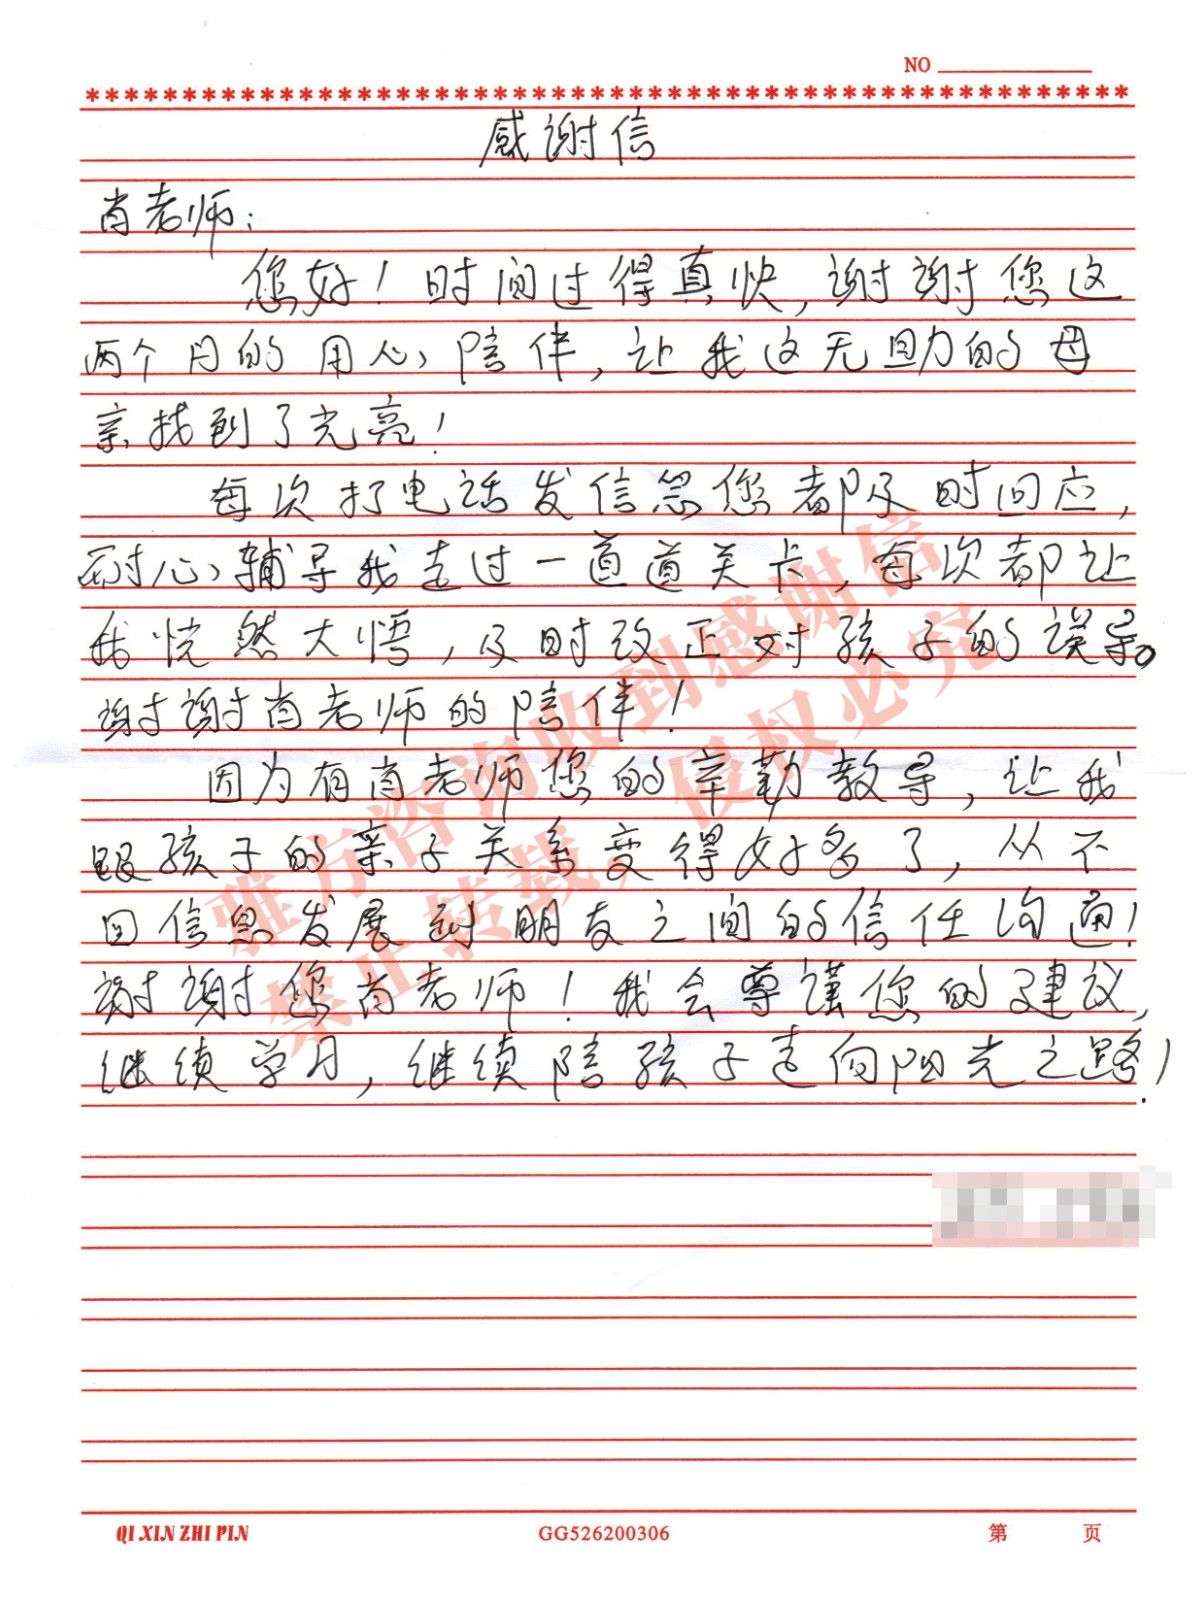 NO
感谢信
肖老师：
您好！时间过得真快，谢谢您这
两个月的用心陪伴，让我这无助的母
亲找到了光亮！
每次打电话发信息您都及时回应，
耐心辅导我走过一道道关卡，每次都让
我恍然大悟，及时改正对孩子的误导。
谢谢肖老师的陪伴！
因为有肖老师您的辛勤教导，让我
跟孩子的亲子关系变得好多了，从不
回信息发展到朋友之间的信任沟通！
谢谢您肖老师！我会尊谨您的建议，
继续学习，继续陪孩子走向阳光之路！
雅方咨询收到感谢信
禁止转载，侵权必究
QI XIN ZHI PIN
GG526200306
第 页